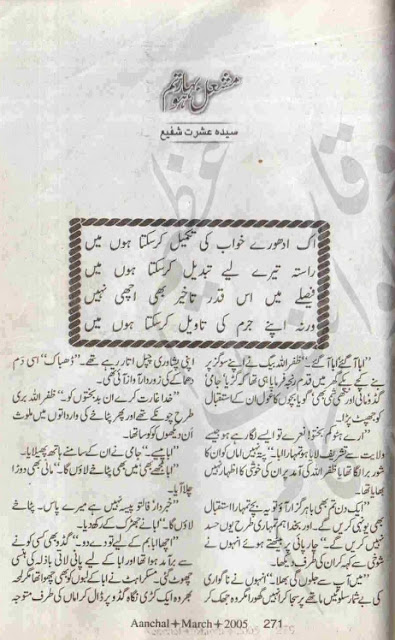 مشعلِ بہار ہو تم
سیدہ عشرت شفیع
اک ادھورے خواب کی تکمیل کرسکتا ہوں میں
راستہ تیرے لیے تبدیل کرسکتا ہوں میں
فیصلے میں اس قدر تاخیر بھی اچھی نہیں
ورنہ اپنے جرم کی تاویل کرسکتا ہوں میں
”ابا آگئے ابا آگئے۔“ ظفر اللہ بیگ نے اپنے سو گز پر
بنے کچے پکے گھر میں قدم رنجہ فرمایا ہی تھا کہ گڑیا، جانی،
گڈو، مانی اور پنکی، بھی گویا بچوں کا غول ان کے استقبال
کو جھپٹ پڑا۔
”ارے ہٹو کم بختو! نعرے تو ایسے لگا رہے ہو جیسے
ولایت سے تشریف لایا ہو تمہارا ابا۔“
شور برا لگا تھا یا ظفر اللہ کی آمد پر ان کی خوشی کا اظہار نہیں
بھایا تھا۔
”ایک دن تم بھی باہر گزار آؤ تو یہ بچے تمہارا استقبال
بھی یونہی کریں گے۔ اور بخدا ہم تمہاری طرح یوں حسد
نہیں کریں گے۔“ چارپائی پر بیٹھتے ہوئے انہوں نے
شوخی سے کہہ کر ان کی طرف دیکھا۔
”میں آپ سے جلوں گی بھلا۔“ انہوں نے ناگواری
کی بے شمار سلوٹیں ماتھے پر سجا کر انہیں گھورا مگر وہ جھک کر
اپنی پشاوری چپل اتار رہے تھے۔ ”ڈھباک“ اسی دم
دھماکے کی زوردار آواز آئی تھی۔
”خدا غارت کرے ان بدبختوں کو۔“ ظفر اللہ بری
طرح چونکے تھے اور پھر پٹاخے کی وارداتوں میں ملوث
ان دیکھوں کو کوسا تھا۔
”ابا پیسے۔“ جانی نے ان کے سامنے ہاتھ پھیلایا۔
”ابا مجھے بھی، میں بھی پٹاخے لاؤں گا۔“ مانی بھی دوڑا
چلا آیا۔
”خبردار! فالتو پیسہ نہیں ہے میرے پاس۔ پٹاخے
لاؤں گا۔“ ابا نے جھڑک کے رکھ دیا۔
”اچھا ابا بم کے لیے تو دے دو۔“ گڈو بھی کسی کونے
سے برآمد ہوا تھا اور ابا کے لیے پانی لاتی باذلہ کی ہنسی
چھوٹ گئی۔ مسکراہٹ نے ابا کے لبوں کو بھی چھوا تھا مگر لمحہ
بھر وہ ایک کڑی نگاہ گڈو پر ڈال کر اماں کی طرف متوجہ
Aanchal + March + 2005 271